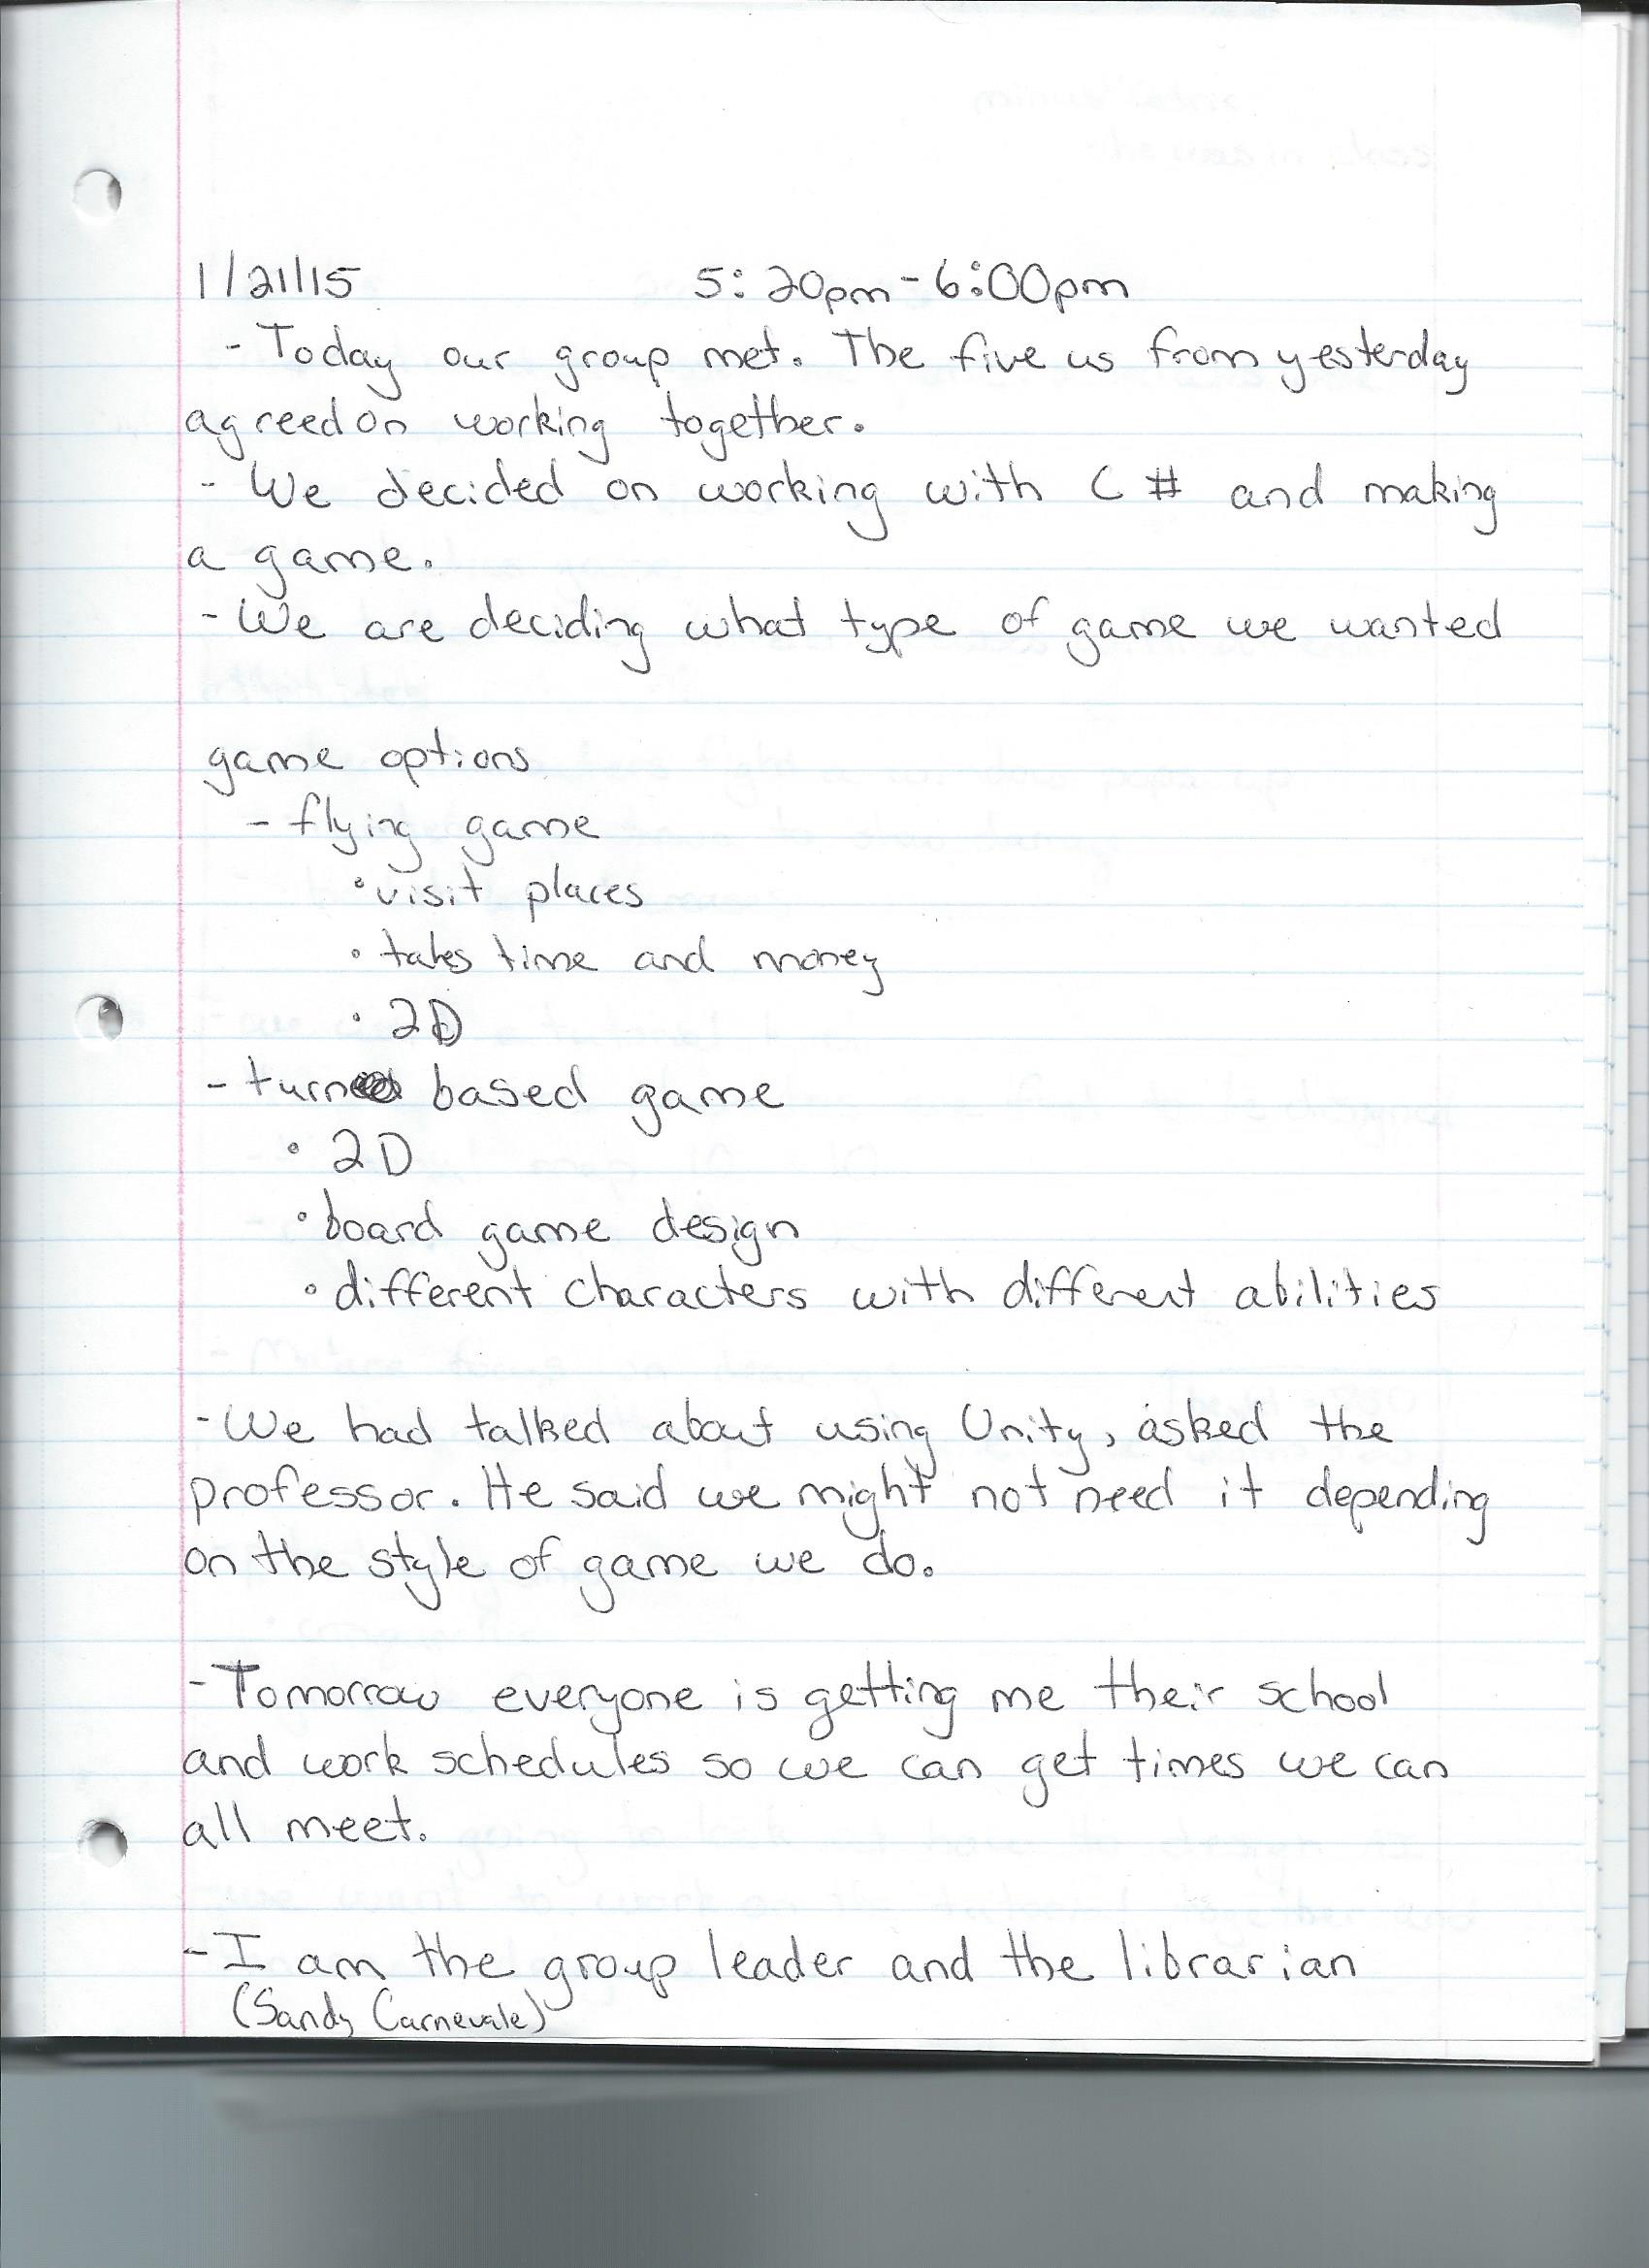 1/21/15 5:20pm-6:00pm
- Today our group met. The five us from yesterday
agreed on working together.
- We decided on working with C# and making
a game.
- We are deciding what type of game we wanted
game options
- flying game
• visit places
• takes time and money
• 2D
- turn based game
• 2D
• board game design
• different characters with different abilities
- We had talked about using Unity, asked the
professor. He said we might not need it depending
on the style of game we do.
- Tomorrow everyone is getting me their school
and work schedules so we can get times we can
all meet.
- I am the group leader and the librarian
(Sandy Carnevale)